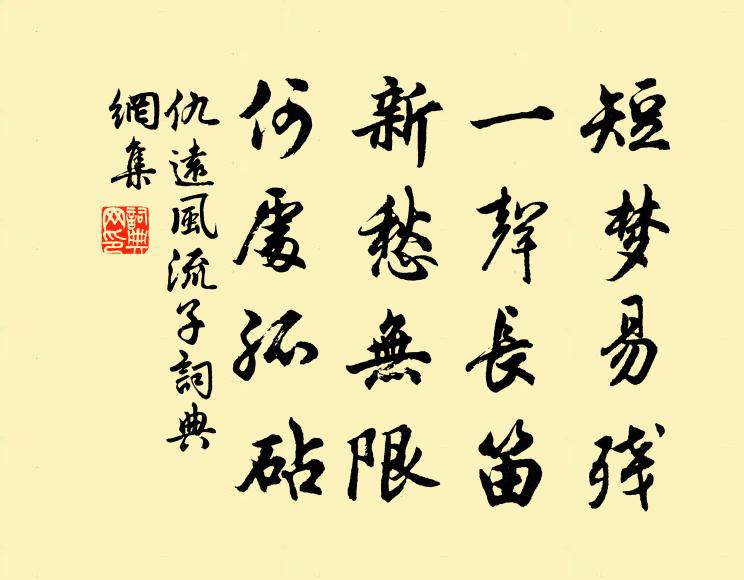 短梦易残
一聲長笛
新愁無限
何處孤砧
仇遠風流子詞典
網集
詞典網印